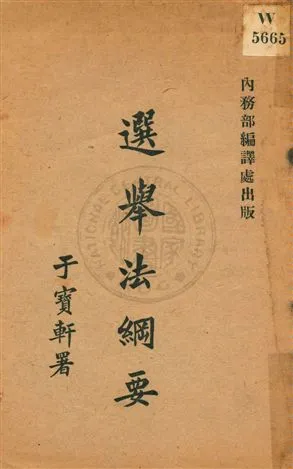 W
5665
內務部編譯處出版
選舉法綱要
于寶軒署
NATIONAL CENTRAL LIBRARY